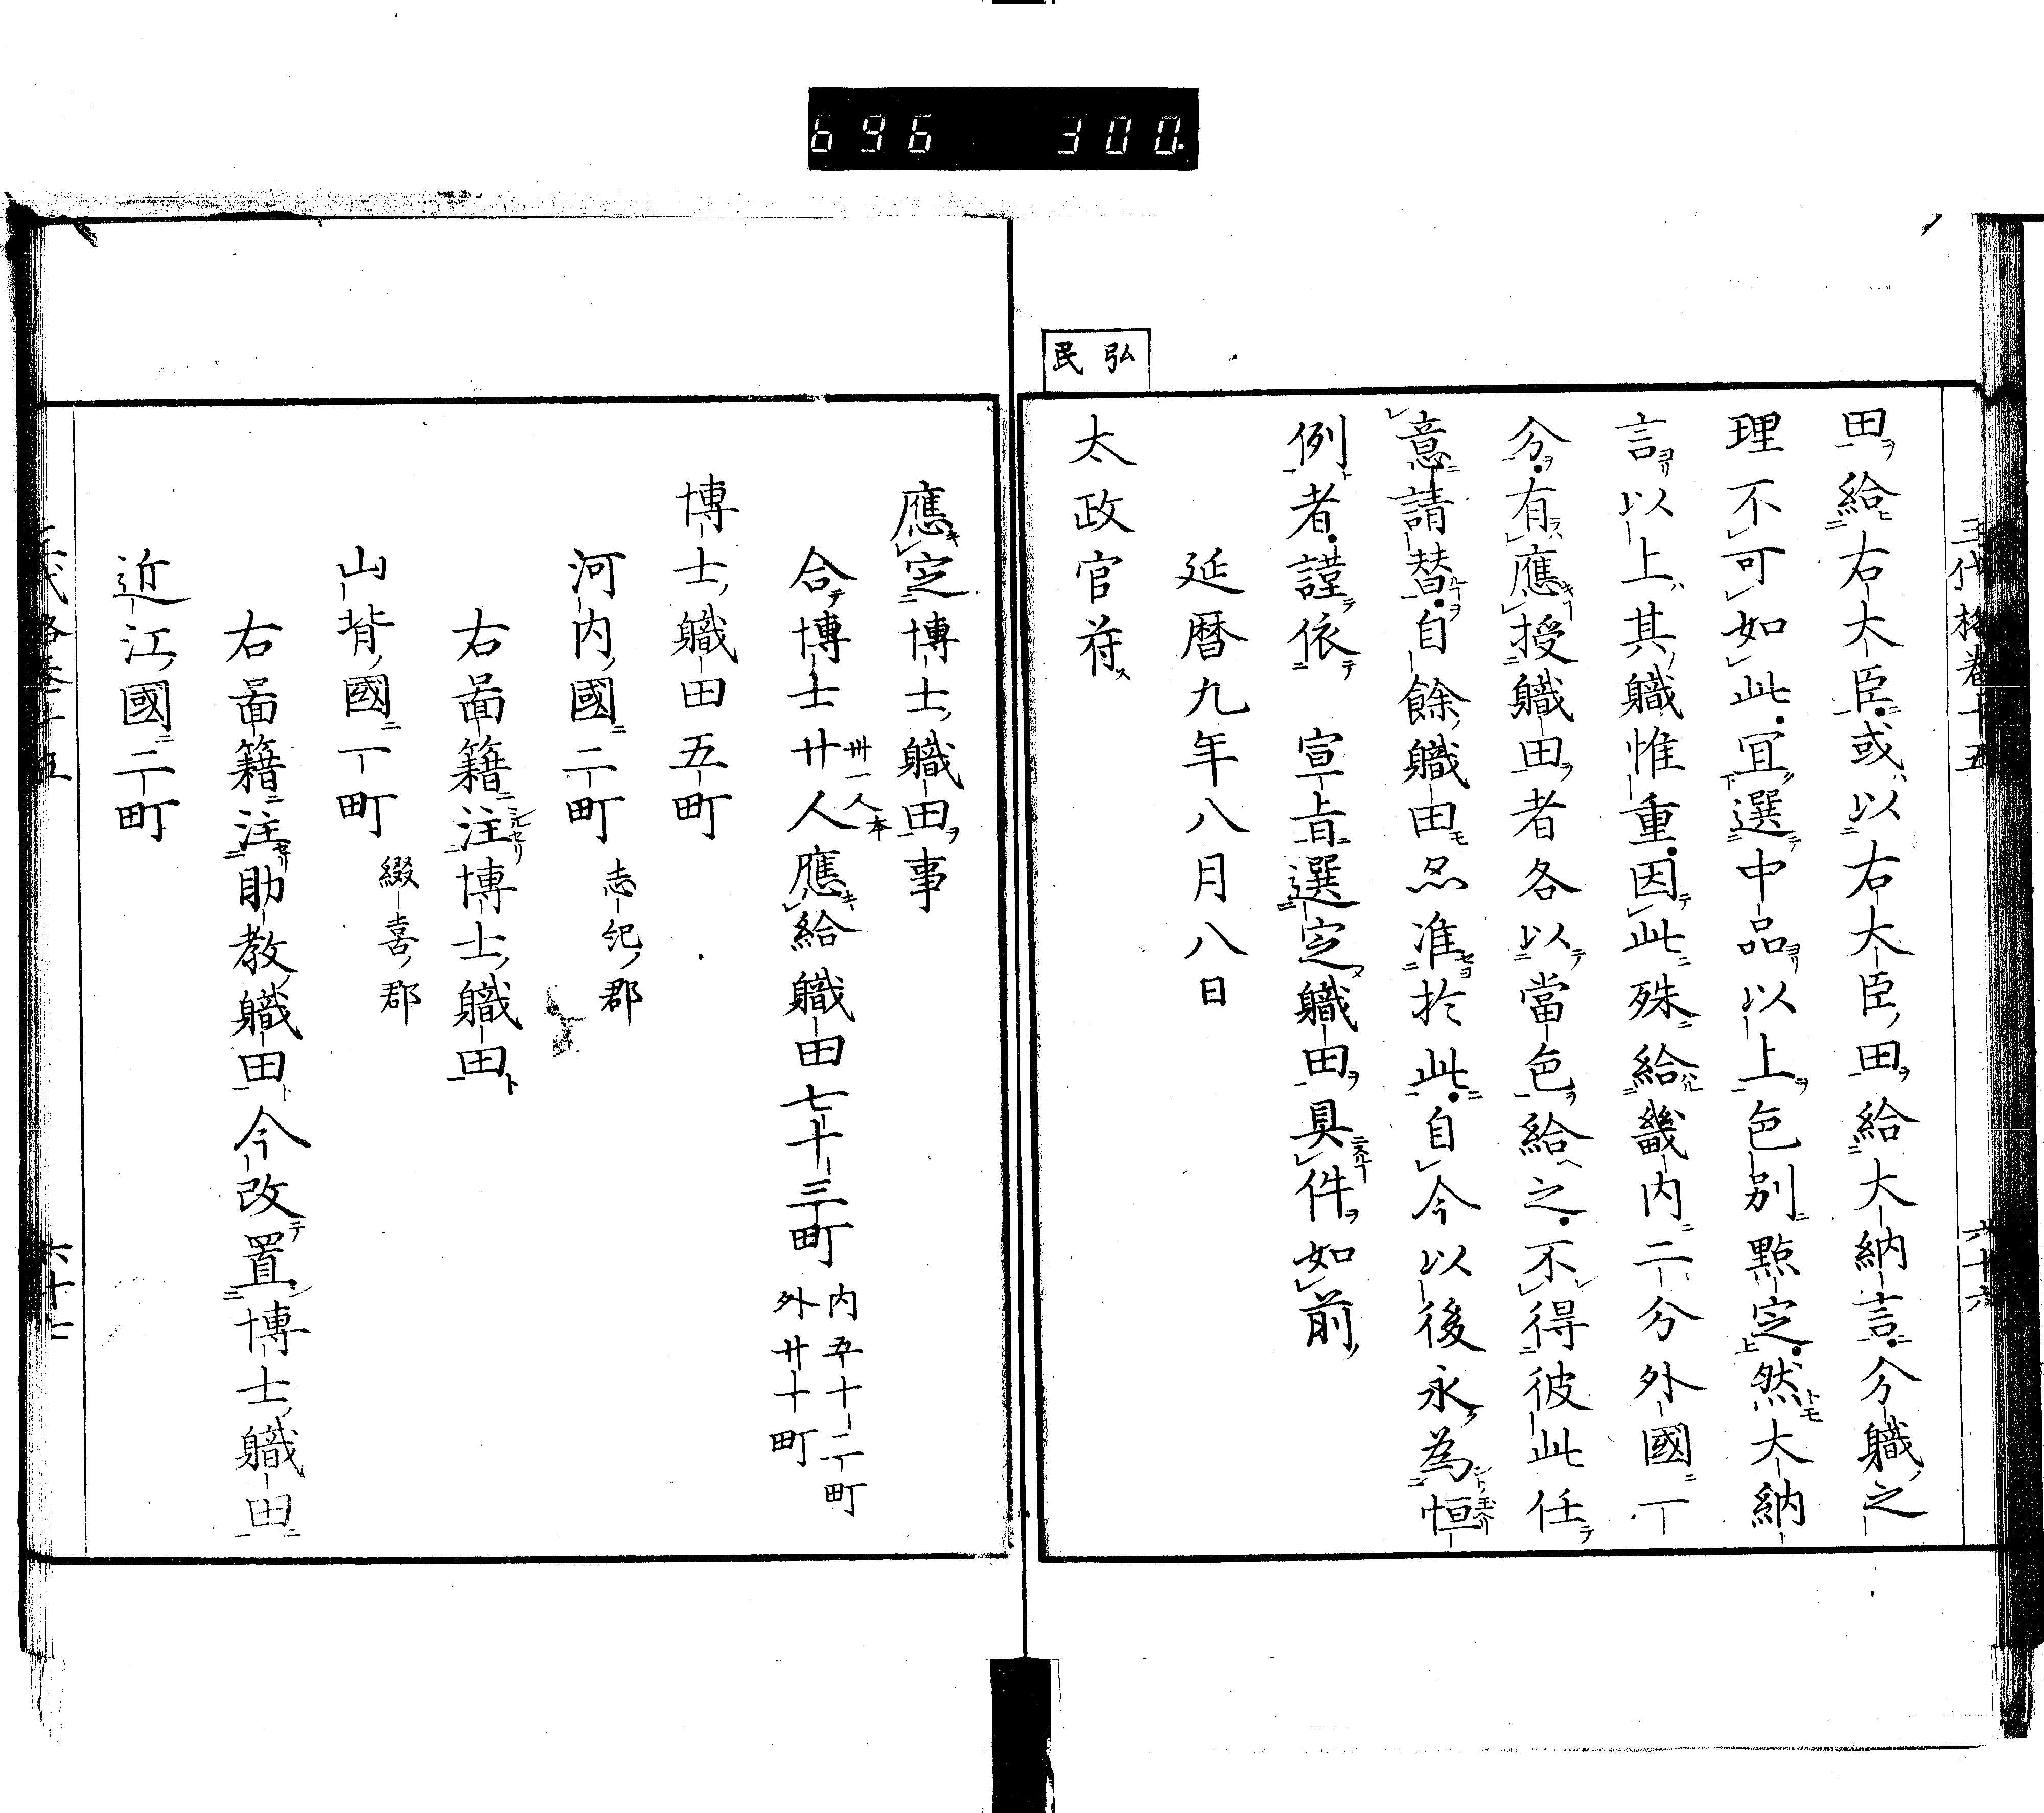 696 300
三代格卷十五 六十六
田給右大臣或以右大臣田給大納言分職之
理不可如此宜選中品以上色別點定然大納
言以上其職惟重因此殊給畿内二分外國一
分有應授職田者各以當色給之不得彼此任
意請替自餘職田亦准於此自今以後永為恒
例者謹依 宣旨選定職田具件如前
延暦九年八月八日
弘民
太政官符
應定博士職田事
合博士廿人應給職田七十三町 内五十二町 外廿十町
卅一人本
博士職田五町
河内國二町 志紀郡
右啚籍注博士職田
山背國一町 綴喜郡
右啚籍注助教職田今改置博士職田
近江國二町
三代格卷十五 六十七